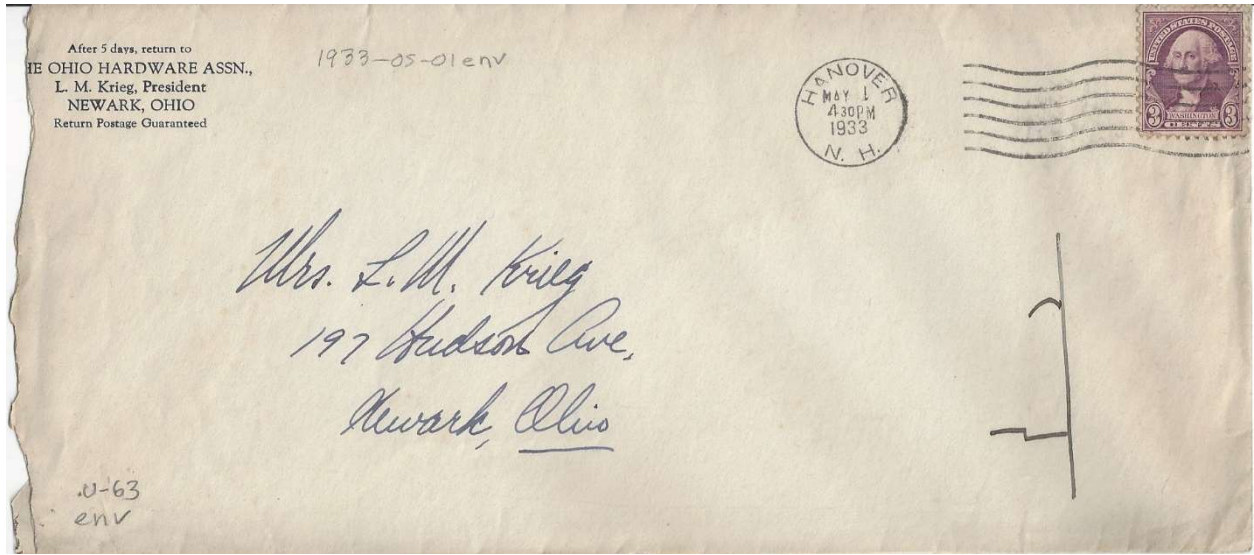 After 5 days, return to
HE OHIO HARDWARE ASSN.,
L. M. Krieg, President
NEWARK, OHIO
Return Postage Guaranteed
1933-05-01env
HANOVER
MAY 1
430PM
1933
N. H.
UNITED STATES POSTAGE
3 WASHINGTON 3
CENTS
Mrs. L. M. Krieg
197 Hudson Ave,
Newark, Ohio
U-63
env